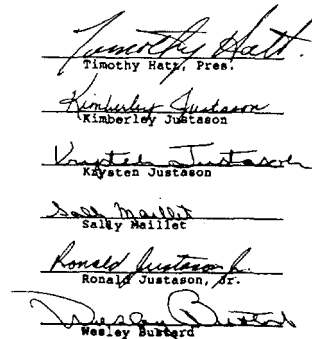 Timothy Hatt.
Timothy Hatt, Pres.
Kimberley Justason
Kimberley Justason
Krysten Justason
Krysten Justason
Sally Maillet
Sally Maillet
Ronald Justason Jr.
Ronald Justason, Jr.
Wesley Bustard
Wesley Bustard